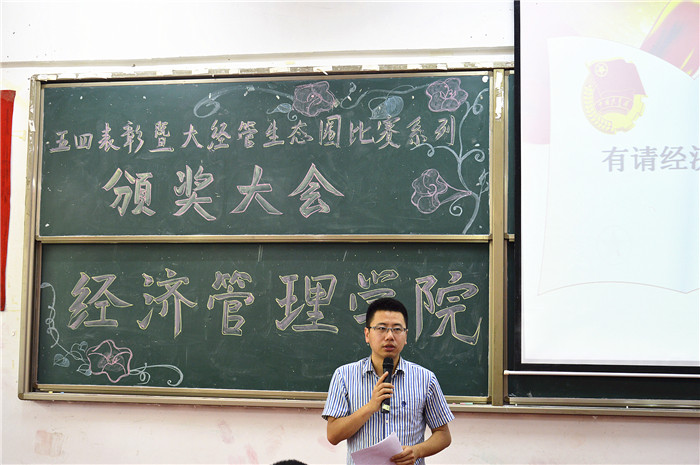 五四表彰暨大经管生态圈比赛系列
颁奖大会
经济管理学院
有请经济